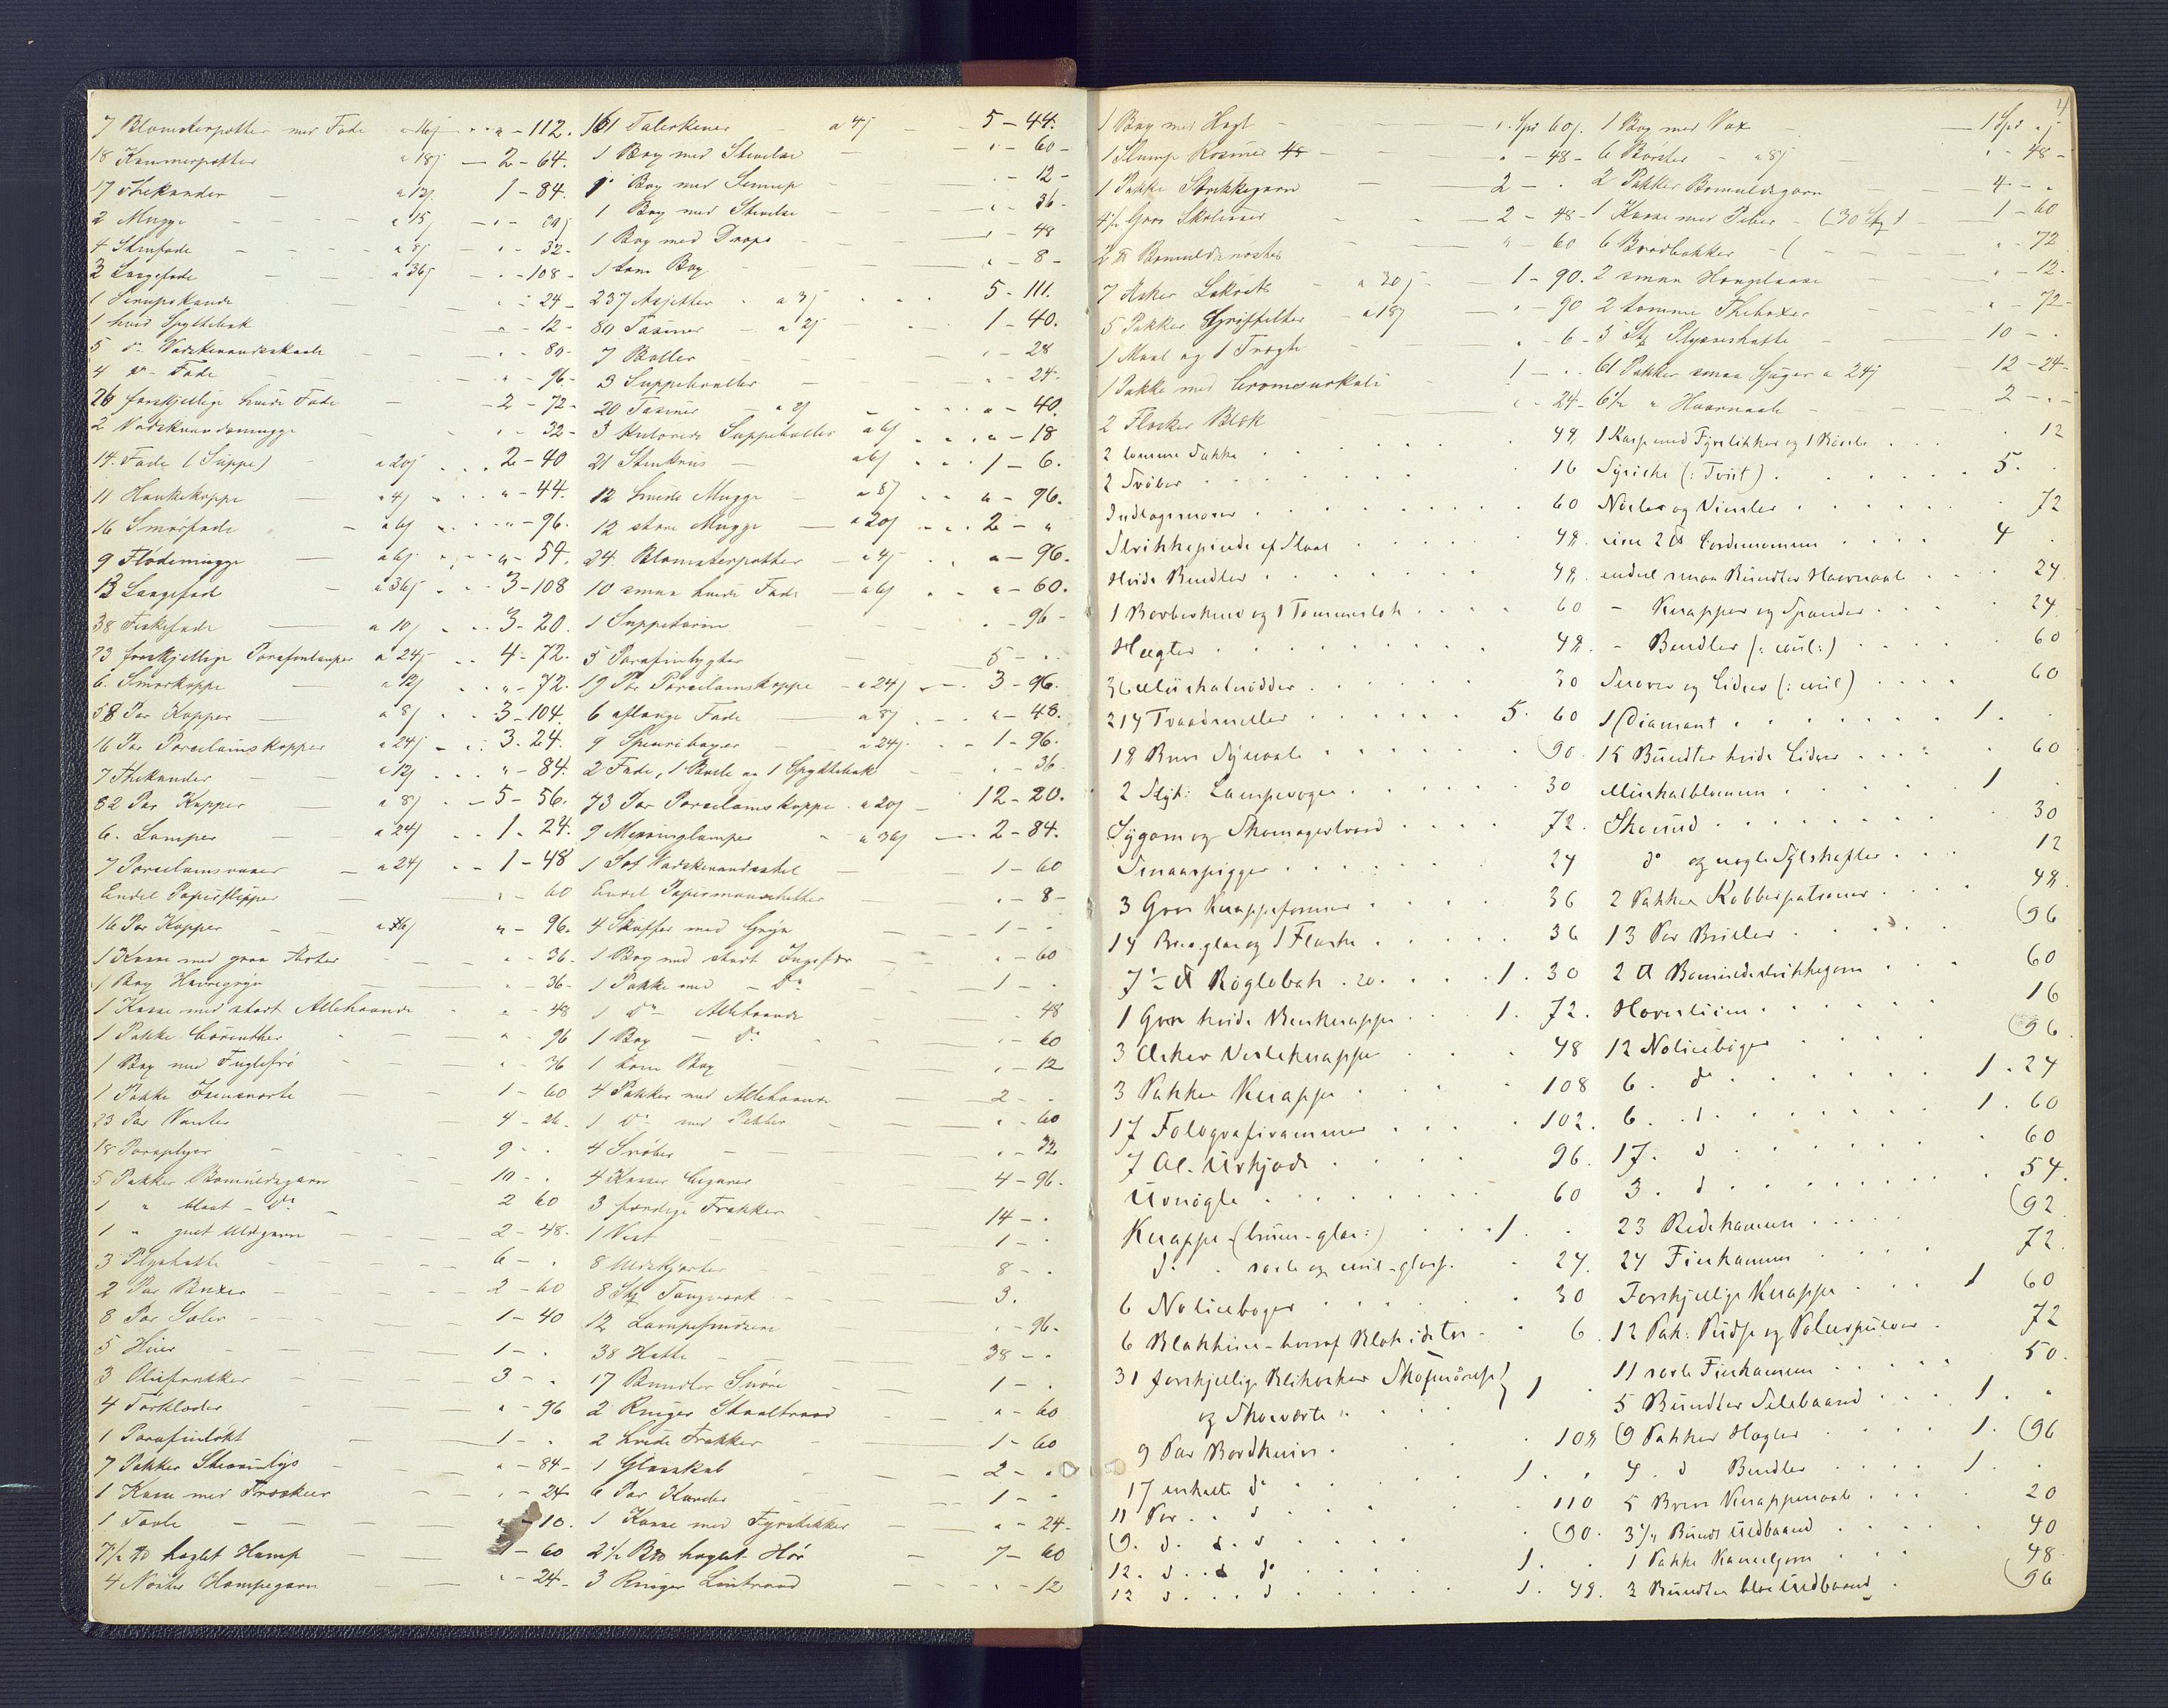 7 Blomsterpotter med Fade a 16 s - 112.
18 Kammerpotter a 18 s - 2 - 64.
17 Thekander a 12 s 1 - 84.
2 Mugge a 15 s
4 Stenfade a 8 s - 32 -
3 Langefade a 36 s - 108 -
1 Sirupskande - 24 -
1 hvid Spyttebak - 12 -
5 do Vadskevandsskaale - 80 -
4 do Fade - 96 -
26 forskjellige hvide Fade - 2 - 72 -
2 Vadskevandsmugge - 32 -
14 Fade (Suppe) a 20 s 2 - 40
11 Hankekoppe a 4 s - 44.
16 Smørfade a 6 s - 96.
9 Flødemugge a 6 s - 54.
13 Langefade a 36 s 3 - 108
38 Fiskefade a 10 s 3 - 20.
23 forskjellige Parafinlamper a 24 s 4 - 72.
6 Smørkoppe a 12 s - 72.
58 Par Kopper a 8 s 3 - 104.
16 Par Porcelainskopper a 24 s 3 - 24.
7 Thekander a 12 s - 84.
82 Par Kopper a 8 s - 5 - 56.
6 Lamper a 24 s 1 - 24.
7 Porcelainsvaser a 24 s - 1 - 48
Endel Papirflipper - 60
16 Par Kopper a 6 s - 96.
1 Kasse med graa Erter - 36 -
1 Bøg Havregryn - 36 -
1 Kasse med stødt Allehaande - 48
1 Pakke Corenther - 96
1 Bøg med Fuglefrø - 36
1 Pakke 1 - 60
23 Par Vanter 4 - 26 -
18 Paraplyer 9 -
5 Pakker Bomuldsgarn 10 -
1 " blaat - do 2 60
1 " graat Uldgarn 2 - 48.
3 Plyshatte 6 -
2 Par Buxer 2 - 60
8 Par Saaler 1 - 40
5 Huer 1 -
3 Oliefrakker 3 -
4 Tørklæder - 96
1 Parafinløkt 1 -
7 Pakker Stearinlys - 84 -
1 Kasse med Træskeer - 24
1 Tavle - 10.
7 1/2 ℔ heglet Hamp 1 - 60
4 Nøster Hampegarn - 24 -
161 Talerkener a 4 s 5 - 44.
1 Bøg med Stivelse - 60 -
1 Bøg med Sennep - 12 -
1 Bøg med Stivelse - 36 -
1 Bøg med Drops - 48
1 tom Bøg - 8 -
237 Asjetter a 3 s 5 - 111.
80 Tasiner a 2 s 1 - 40.
7 Boller - 28
3 Suppeboller - 24 -
20 Tasiner a 2 s - 40.
3 kulørede Suppeboller a 6 s - 18
21 Stenkrus a 6 s 1 - 6.
12 hvide Mugge a 8 s - 96.
12 store Mugge a 20 s 2 - "
24 Blomsterpotter a 4 s - 96.
10 smaa hvide Fade a 6 s - 60.
1 Suppeterin - 96 -
5 Parafinlygter 5 -
19 Par Porcelainskoppe a 24 s 3 - 96.
6 aflange Fade a 8 s - 48.
9 a 24 s 1 - 96.
2 Fade, 1 Bolle og 1 Spyttebak - 36
73 Par Porcelainskoppe a 20 s 12 - 20.
9 Messinglamper a 36 s 2 - 84.
1 Sæt Vadskevandsstel 1 - 60
Endel Papirmanschetter - 8 -
4 Skuffer med Gryn 1 -
1 Bøg med stødt Ingefær - 60
1 Pakke med - do 1 -
1 do Allehaande 48
1 Bøg - do - 60
1 tom Bøg - 12
4 Pakker med Allehaande 2 -
1 do med Pebber - 60
4 Snøber - 32
4 Kasser Cigarer 4 - 96 -
3 færdige Frakker 14 -
1 Vest 1 -
8 Uldskjorter 8 -
8 Stk Tougværk 3.
12 Lampefundser - 96 -
38 Hatte 38 -
17 Bundter Snøre 1 -
2 Ringer Staaltraad - 60
2 hvide Frakker 1 - 60
1 Glasskab 2 -
6 Par Karder 1 -
1 Kasse med Fyrstikker - 24 -
2 1/2 heglet Hør 7 - 60
3 Ringer Lintraad - 12
4
1 Bøg med Hagl Spd 60 s.
1 Slump Rosiner - 48 -
1 Pakke Strikkegarn 2 -
4 1/2 Gros Skolisser 2 - 48 -
2 ℔ Bomuldsnøster - 60
7 Æsker Lakrits a 30 s 1 - 90.
5 Pakker Grifteller a 18 s - 90
1 Maal og 1 Tragt - 6 -
1 Pakke med Cromsurkali 1 -
2 Flasker Blæk - 24 -
2 tomme Sække 48
2 Snøber 16
Indlagsnører 60
Strikkepinde af Staal 48
Hvide Bendler 48
1 Barberkniv og 1 Tommestok 60
Hægter 48
36 Muskatnødder 30
214 Traadsneller 5. 60
18 Breve Synaale 90
2 Stk: Lampevæger 30
Sygarn og Skomagertraad 72.
Smaaspigger 24
3 Gros Knappeformer 36
14 Brilleglas og 1 Flaske 36
7 1/2 ℔ Røgtobak . 20 . 1. 30
1 Gros hvide Benknappe 1. 72.
3 Æsker Vesteknappe 48
3 Pakker Knappe 108
17 Fotografirammer 102.
7 Al. Urkjæde 96.
Urnøgle 60
Knappe (brune-glas:) 1.
do sorte og hvid-glasp. 24.
6 Noticebøger 30
6 Blækhuse - hvoraf 6.
31 forskjellige Blikæsker Skosmørelse
og Skosværte 1
9 Par Bordknive 108
17 enkelte do 1.
11 Par do 110
9. do. do. 90.
12. do. do. 1.
12 do. do. 1. 48.
1 Bøg med Vax 1 Spd s
6 Børster a 8 s - 48 -
2 Pakker Bomuldsgarn 4 -
1 Kasse med Piber - (30 Stk) 1 - 60
6 Brødbakker - 72
2 smaa Hængelaase - 12.
2 tomme Thebøxer - 72 -
5 Stk Plysseshatte 10 -
61 Pakker smaa Spiger a 24 s 12 - 24 -
6 1/2 " Haarnaale 2 -
1 Kasse med Fyrstikker og 1 Børste 12
Sysilke (: Tvist) 5.
Naaler og Vinsler 72
2 ℔ Cardemomme 4
endel smaa Bundter Haarnaale 24
- Knapper og Spænder 24
- Bendler (: uul:) 60
Snører og Lidser (: uul) 60
1 Diamant 1.
15 Bundter hvide Lidser 60
Muskatblomme 1
Skosnud 30
do og nogle Sylskafter 12
2 Pakker Kobberpatroner 48.
13 Par Briller 96
2 ℔ Bomuldsstrikkegarn 60
Hovesliim 16
12 Noticebøger 96
6. do 1. 24
6. do 1. 60
17. do 60
3. do 54.
23 Redekamme 92
24 Finkamme 72.
Forskjellige Knappe 1 60
12 Pak: Pudse og Polerpulver 72
11 sorte Finkamme 50.
5 Bundter Selebaand 1.
9 Pakker Hægter 1. 96
4. do Bendler 1.
5 Breve Knappenaale 20
3 1/4 Bundt Uldbaand 40
1 Pakke Kamelgarn 48
3 Bundter blaa Uldbaand 96